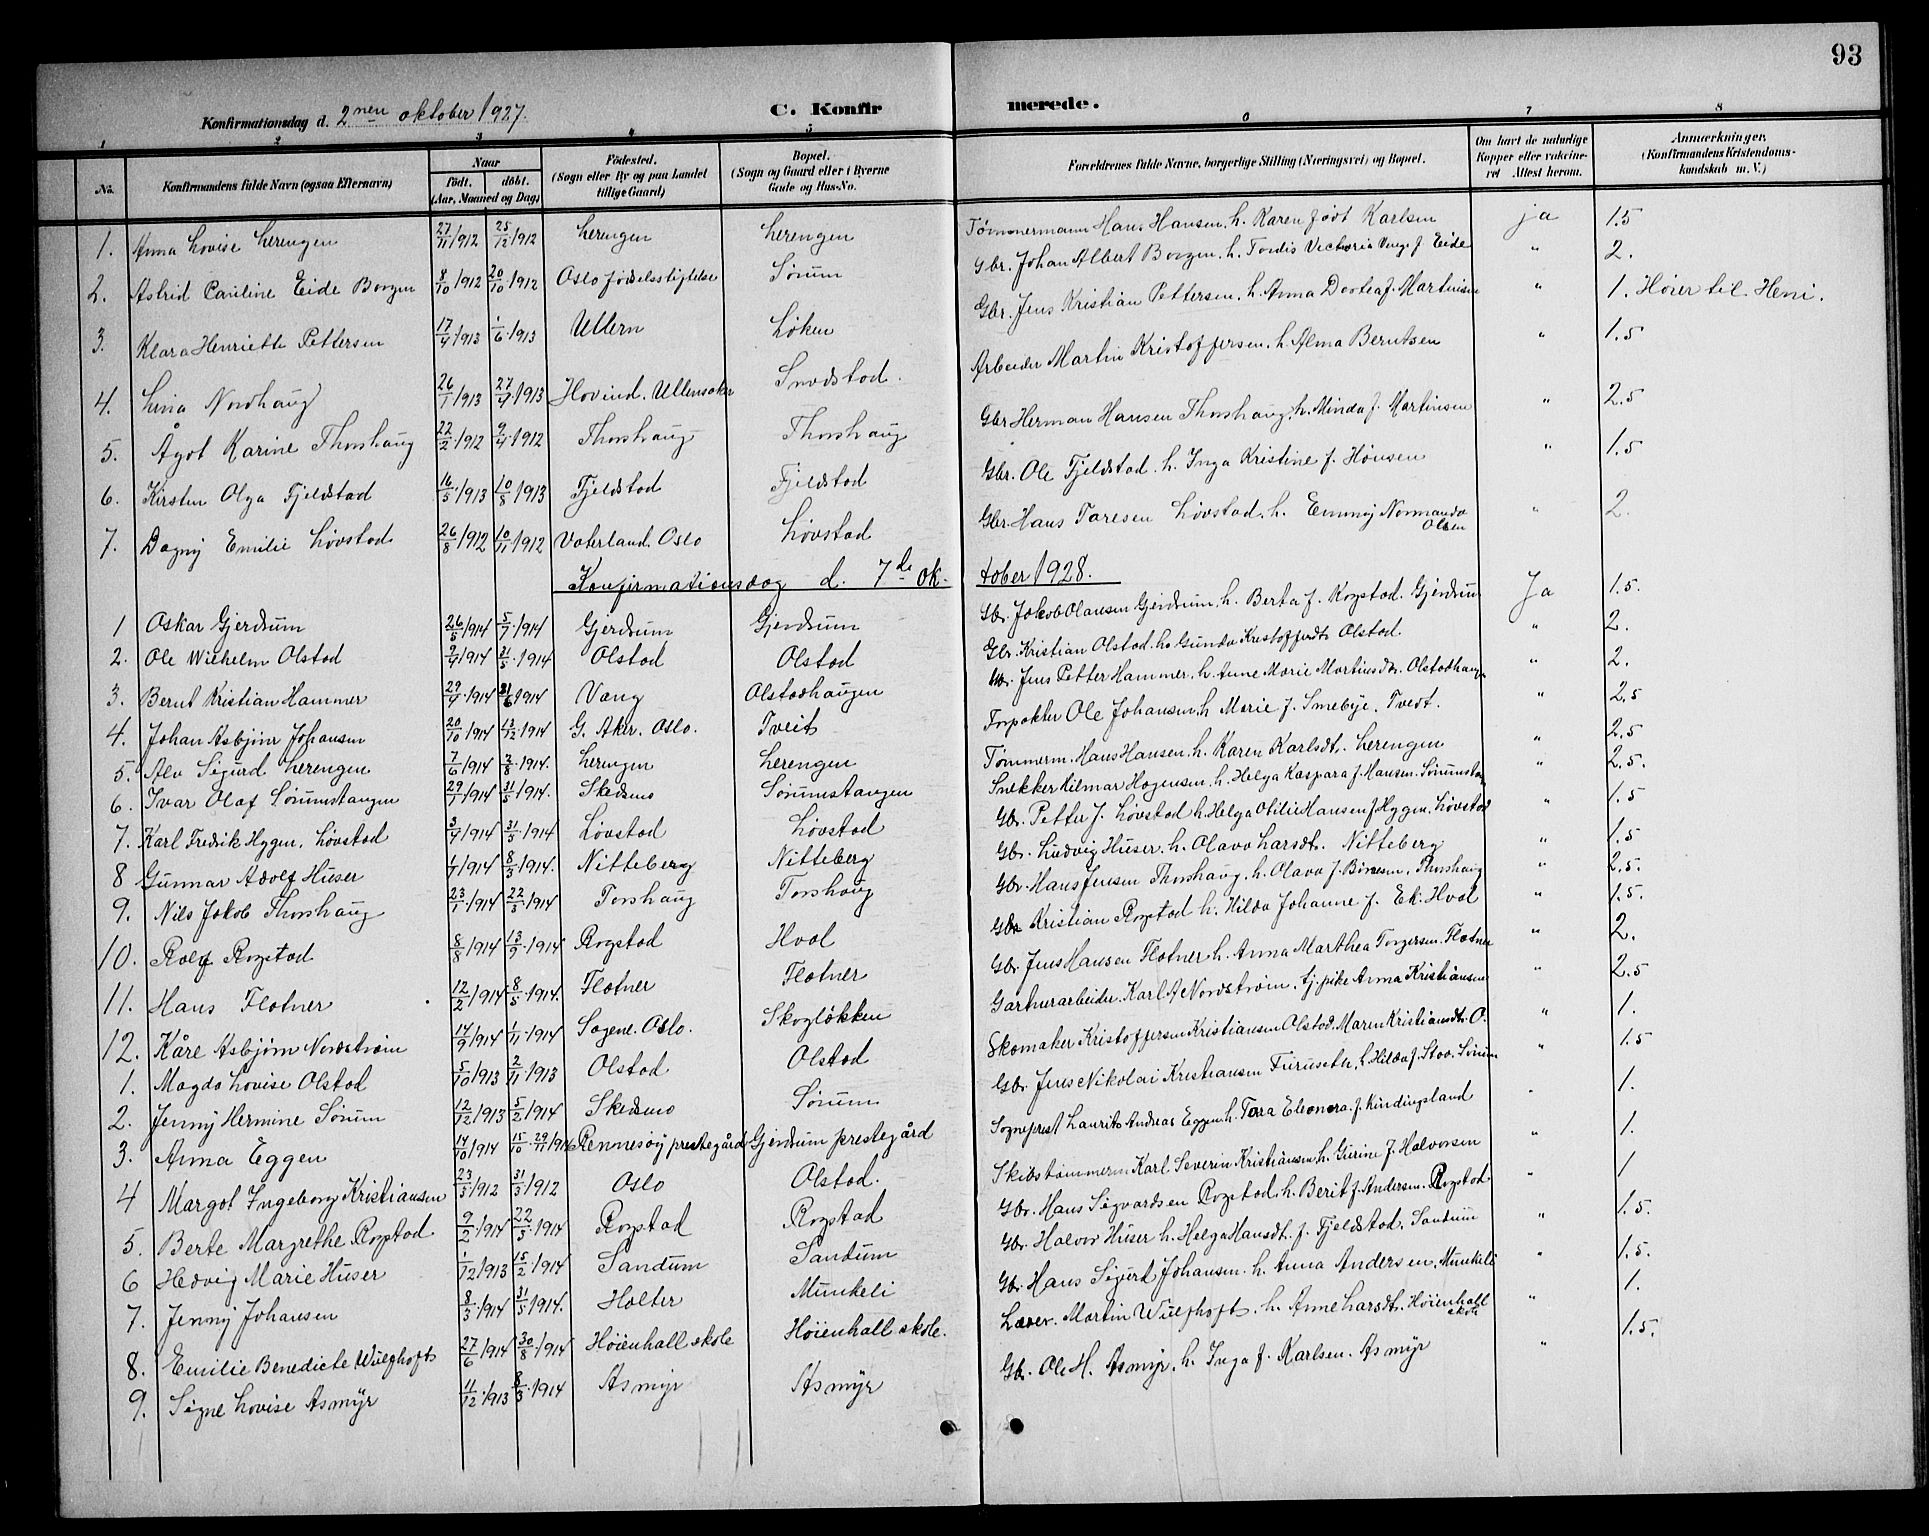 93
Konfirmationsdag d. 2nen oktober 1927. C. Konfirmerede.
1 2 3 4 5 6 7 8
No. Konfirmandens fulde Navn (ogsaa Efternavn) Naar födt. döbt. (Aar, Maaned og Dag) Födested. (Sogn eller By og paa Landet tillige Gaard) Bopæl. (Sogn og Gaard eller i Byerne Gade og Hus-No. Forældrenes fulde Navne, borgerlige Stilling (Næringsvei) og Bopæl. Om havt de naturlige Kopper eller vaccineret Attest herom. Anmærkninger. (Konfirmandens Kristendomskundskab m. V.)
1. Anna Lovise Lerengen 27/11 1912 25/12 1912 Lerengen Lerengen Tømmermann Hans Hansen, h. Karen født Karlsen ja 1.5
2. Astrid Pauline Eide Borgen 8/10 1912 20/10 1912 Oslo fødselsstiftelse Sørum Gbr. Johan Albert Borgen, h. Tordis Victoria f. Eide " 2.
3. Klara Henriette Pettersen 17/4 1913 1/6 1913 Ullern Løken Gbr. Jens Kristian Pettersen, h. Anna Dortea f. Martinsen " 1. Hører til Heni.
4. Lina Nordhaug 26/1 1913 27/4 1913 Hovind, Ullensaker Arbeider Martin Kristoffersen, h. Alma Berntsen " 1.5
5. Ågot Karine Thorshaug 22/2 1912 9/4 1912 Thorshaug Thorshaug Gbr Herman Hansen Thorshaug, h. Minda f. Martinsen " 2.5
6. Kirsten Olga Fjeldstad 16/5 1913 10/8 1913 Fjeldstad Fjeldstad Gbr. Ole Fjeldstad. h. Inga Kristine f. Hansen " 1.5
7. Dagny Emilie Løvstad 26/8 1912 10/11 1912 Vaterland. Oslo Løvstad Gbr. Hans Løvstad, h. Emmy Normanda Olsen " 2.
Konfirmationsdag d. 7de oktober 1928.
1 Oskar Gjerdrum 26/5 1914 5/7 1914 Gjerdrum Gjerdrum Gbr. Jakob Olausen Gjerdrum, h. Berta f. Rogstad. Gjerdrum Ja 1.5.
2. Ole Wilhelm Olstad 9/4 1914 31/5 1914 Olstad Olstad Gbr. Kristian Olstad, h. Gunda Kristoffersdt. Olstad. " 2.
3. Bernt Kristian Hammer 29/4 1914 21/6 1914 Vang Olstadhaugen Gbr. Jens Petter Hammer, h. Anne Marie Martinsdtr. Olstadhaugen " 2.
4. Johan Asbjørn Johansen 20/10 1914 13/12 1914 G. Aker. Oslo. Tveit Forpakter Ole Johansen, h. Marie f. Smebye. Tvedt. " 2.5
5. Alv Sigurd Lerengen 7/6 1914 2/8 1914. Lerengen Lerengen Tømmerm. Hans Hansen, h. Karen Karlsdt. Lerengen " 2.5
6. Ivar Olaf Sørumstangen 29/1 1914 31/5 1914. Skedsmo Sørumstangen Snekker Hilmar Hagensen, h. Helga Kaspara f. Hansen. Sørumstangen " 2.5.
7. Karl Fredrik Hygen. Løvstad 3/4 1914 31/5 1914 Løvstad Løvstad Gbr. Petter J. Løvstad h. Helga Otilie Hansen f. Hygen. Løvstad " 1.5
8 Gunnar Adolf Huser 1/1 1914 8/3 1914. Nitteberg Nitteberg Gbr. Ludvig Huser. h. Olava Larsdt. Nitteberg " 1.5
9. Nils Jakob Thorshaug 23/1 1914 22/3 1914 Torshaug Torshaug Gbr. Hans Jensen Thorshaug, h. Olava f. Thorshaug " 2.5.
10. Rolf Rogstad 8/8 1914 13/9 1914 Rogstad Hval Gbr Kristian Rogstad h. Hilda Johanne f. Ek. Hval " 1.5.
11. Hans Flotner 12/2 1914 8/5 1914. Flotner Flotner Gbr. Jens Hansen Flotner h. Anna Marthea Torgersen. Flotner " 2.
12. Kåre Asbjørn Nordstrøm 14/9 1914 1/11 1914 Sagene. Oslo. Skogløkken Gartnerarbeider Karl A Nordstrøm. tj. pike Anna Kristiansen " 2.5
1. Magda Lovise Olstad 5/10 1913 2/11 1913 Olstad Olstad Skomaker Kristoffersen Kristiansen Olstad. Maren Kristiansdt. O. " 1.
2. Jenny Hermine Sørum 12/12 1913 5/2 1914 Skedsmo Sørum Gbr. Jens Nikolai Kristiansen Furuseth, h. Hilda f. Stov. Sørum " 1.5
3. Anna Eggen 14/10 1914 15/10 29/11 1914 Rennesøy prestegård Gjerdrum prestegård Sogneprest Laurits Andreas Eggen h. Tora Eleonora f. Kindingsland " 1.
4 Margot Ingeborg Kristiansen 23/3 1912 31/3 1912 Oslo Olstad. Skibstømmerm Karl Severin Kristiansen h. Gurine f. Halvorsen " 1.
5. Berte Margrethe Rogstad 9/2 1914 22/3 1914 Rogstad Rogstad Gbr. Hans Sigvardsen Rogstad, h. Berit f. Andersen. Rogstad " 1
6 Hedvig Marie Huser 1/12 1913 15/2 1914 Sandum Sandum Gbr. Halvor Huser h. Helga Hansdt. f. Fjeldstad, Sandum " 1.5.
7. Jenny Johansen 8/3 1914 31/5 1914. Holter Munkeli Gbr. Hans Sigurd Johansen. h. Anna Andersen. Munkeli " 1.5.
8. Emilie Benedicte Wulfhoft 27/6 1914 30/8 1914 Høienhall skole Høienhall skole. Lærer. Martin Wulfhoft. h. Anne Larsdt. Høienhall skole " 1.
9. Signe Lovise Asmyr 11/12 1913 8/3 1914 Asmyr Asmyr Gbr. Ole H. Asmyr. h. Inga f. Karlsen. Asmyr " 1.5.